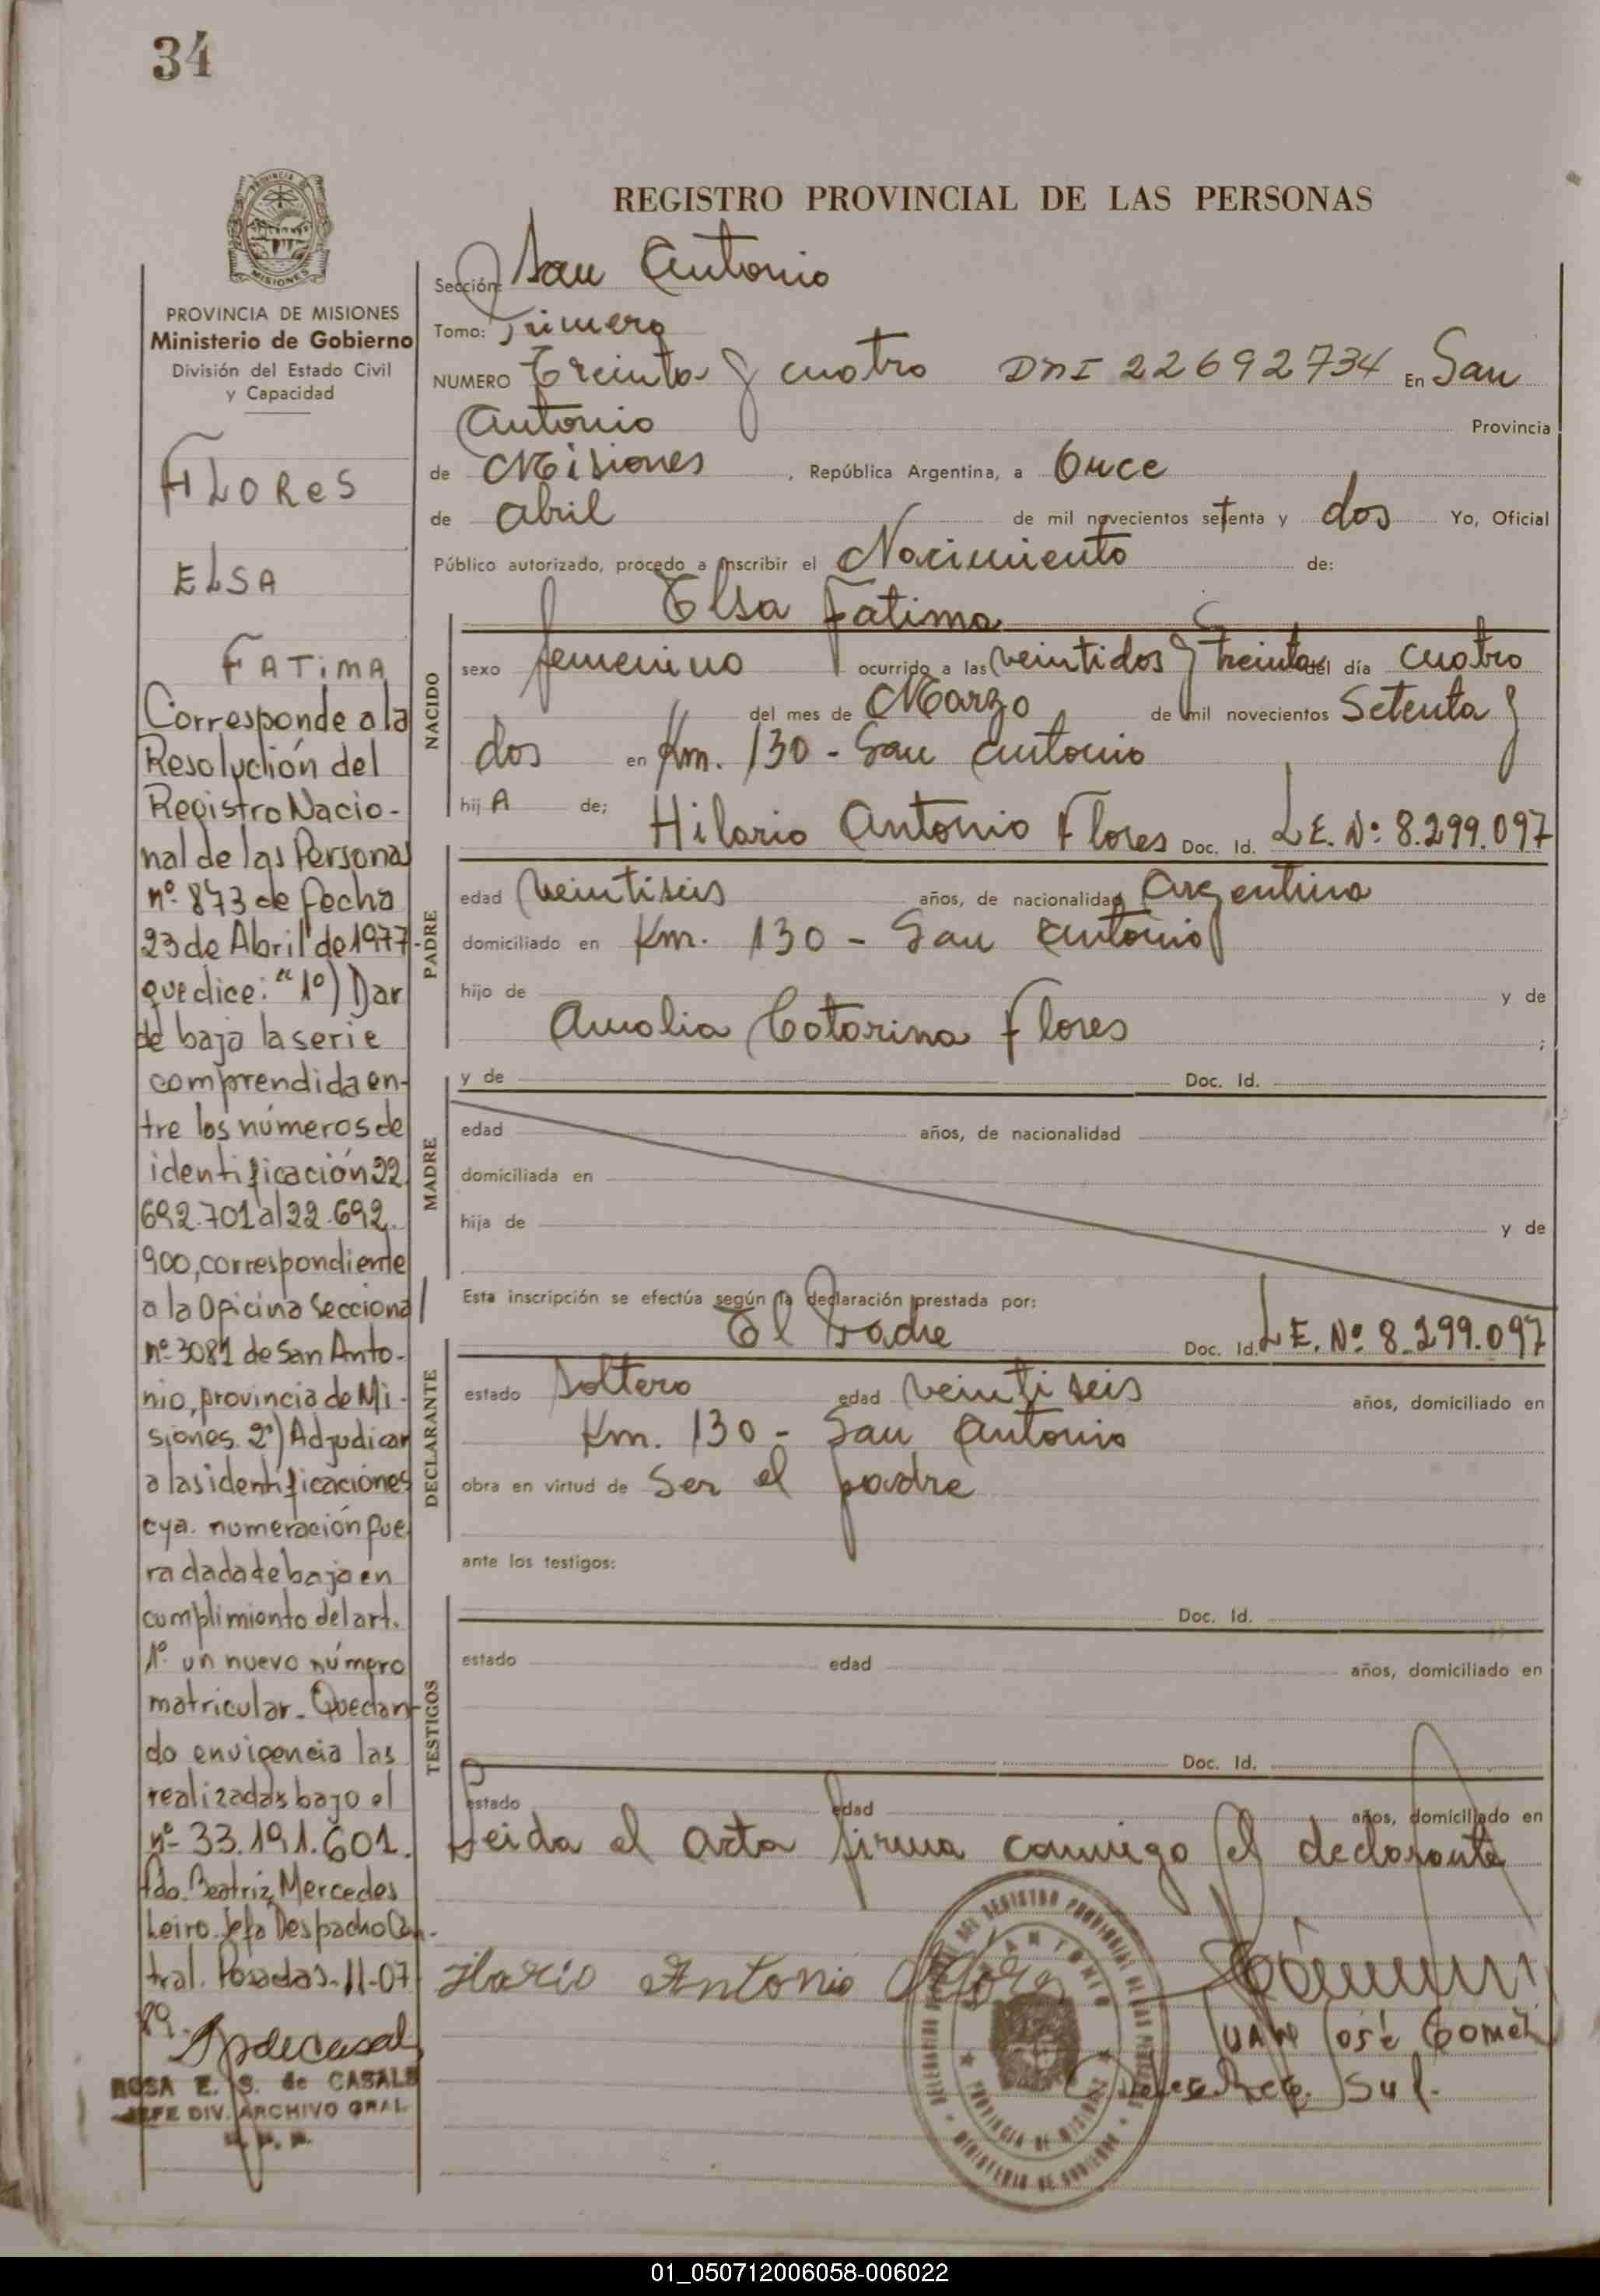 34
REGISTRO PROVINCIAL DE LAS PERSONAS
PROVINCIA DE MISIONES
Ministerio de Gobierno
División del Estado Civil
y Capacidad
FLORES
ELSA
FATIMA
Corresponde a la
Resolución del
Registro Nacio-
nal de las Personas
nº 873 de fecha
23 de Abril de 1977-
que dice: "1º) Dar
de baja la serie
comprendida en-
tre los números de
identificación 22
692.701 al 22.692.
900, correspondiente
a la Oficina Secciona
nº 3081 de San Anto-
nio, provincia de Mi-
siones. 2º) Adjudicar
a las identificaciones
cya. numeración fue
ra dada de baja en
cumplimiento del art.
1º un nuevo número
matricular. Quedan-
do en vigencia las
realizadas bajo el
nº 33.191.601.
fdo. Beatriz Mercedes
Leiro. Jefa Despacho Cen-
tral. Posadas-11-07
89.
ROSA E. S. de CASALS
JEFE DIV. ARCHIVO GRAL
Sección: San Antonio
Tomo: Primero
NUMERO Treinta y cuatro DNI 22692734 En San
Antonio Provincia
de Misiones, República Argentina, a Once
de abril de mil novecientos setenta y dos Yo, Oficial
Público autorizado, procedo a inscribir el Nacimiento de:
Elsa Fatima
NACIDO
sexo femenino ocurrido a las veintidos y treinta del día cuatro
del mes de Marzo de mil novecientos Setenta y
dos en Km. 130 - San Antonio
hij A de; Hilario Antonio Flores Doc. Id. L.E. Nº: 8.299.097
PADRE
edad veintiseis años, de nacionalidad Argentina
domiciliado en Km. 130 - San Antonio
hijo de y de
Amalia Catarina Flores ;
y de Doc. Id.
MADRE
edad años, de nacionalidad
domiciliada en
hija de y de
Esta inscripción se efectúa según la declaración prestada por:
El Padre Doc. Id. L.E. Nº 8.299.097
DECLARANTE
estado Soltero edad veintiseis años, domiciliado en
Km. 130 - San Antonio
obra en virtud de Ser el padre
ante los testigos:
TESTIGOS
Doc. Id.
estado edad años, domiciliado en
Doc. Id.
estado edad años, domiciliado en
Leida el acta firma conmigo el declarante
Ilario Antonio Flores
JUAN José Gomez
SAN ANTONIO
PROVINCIA DE MISIONES
MINISTERIO DE GOBIERNO
01_050712006058-006022